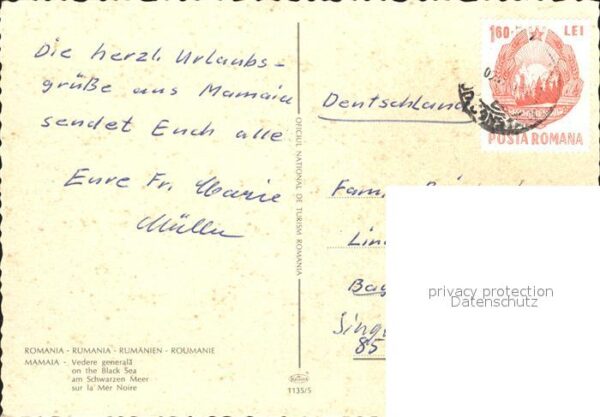 Die herzl. Urlaubs-
grüße aus Mamaia
sendet Euch alle
Eure Fr. Marie
Müller
ROMANIA - RUMANIA - RUMÄNIEN - ROUMANIE
MAMAIA - Vedere generală
on the Black Sea
am Schwarzen Meer
sur la Mer Noire
OFICIUL NATIONAL DE TURISM ROMANIA
1135/5
1,60 LEI
POSTA ROMANA
Deutschland
Fam
Lin
Bay
Sing
85
privacy protection
Datenschutz